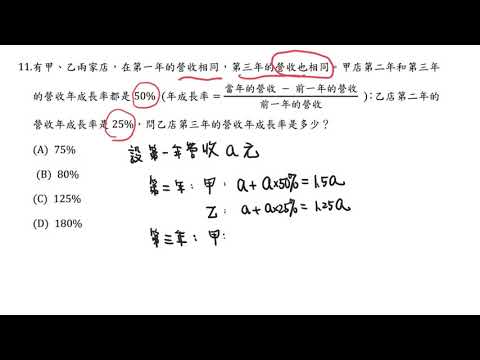 11.有甲、乙兩家店，在第一年的營收相同，第三年的營收也相同。甲店第二年和第三年
的營收年成長率都是 50% (年成長率 = 當年的營收 − 前一年的營收 / 前一年的營收 );乙店第二年的
營收年成長率是 25%，問乙店第三年的營收年成長率是多少？
(A) 75%
(B) 80%
(C) 125%
(D) 180%
設第一年營收 a 元
第二年：甲：a+a×50%=1.5a
乙：a+a×25%=1.25a
第三年：甲：